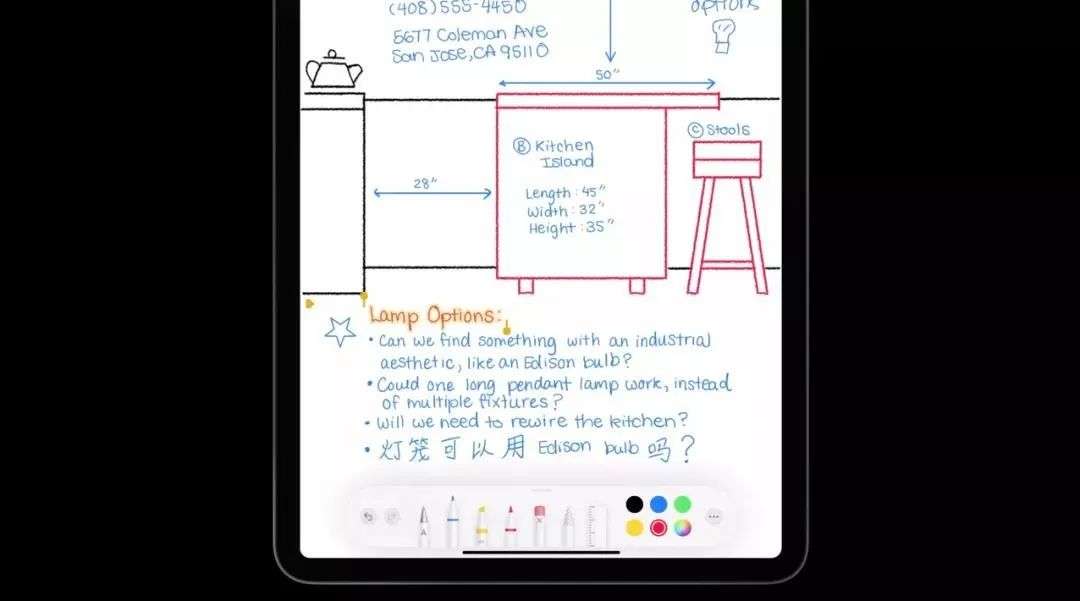 (408)555-4450
5677 Coleman Ave
San Jose, CA 95110
options
50"
28"
Ⓑ Kitchen
Island
Length: 45"
Width: 32"
Height: 35"
Ⓒ Stools
Lamp Options:
• Can we find something with an industrial
aesthetic, like an Edison bulb?
• Could one long pendant lamp work, instead
of multiple fixtures?
• Will we need to rewire the kitchen?
• 灯笼可以用 Edison bulb 吗?
A